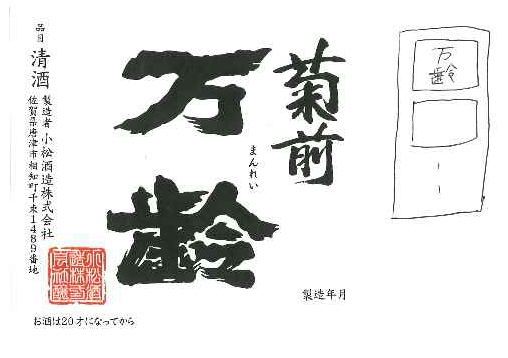 菊前
万齢
まんれい
品目 清酒
製造者 小松酒造株式会社
佐賀県唐津市相知町千束1489番地
製造年月
お酒は20才になってから
万
齢